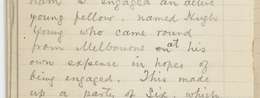 ham I engaged an active
young fellow, named Hugh
Young who came round
from Melbourne at his
own expense in hopes of
being engaged. This made
up a party of Six, which